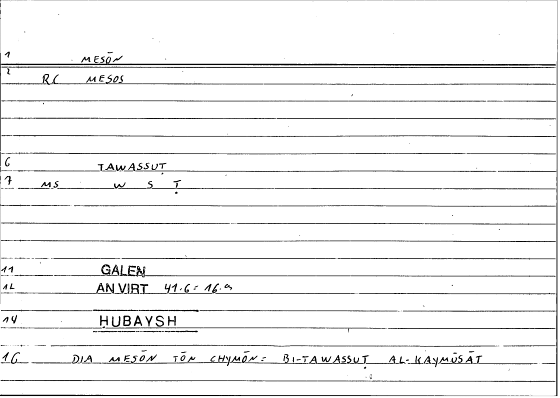 1 MESŌN
2 RC MESOS
6 TAWASSUṬ
7 MS W S Ṭ
11 GALEN
12 AN VIRT 41.6 = 16.9
14 HUBAYSH
16 DIA MESŌN TŌN CHYMŌN = BI-TAWASSUṬ AL-KAYMŪSĀT